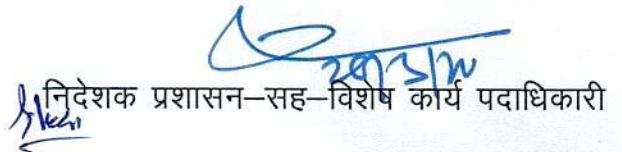 निदेशक प्रशासन–सह–विशेष कार्य पदाधिकारी